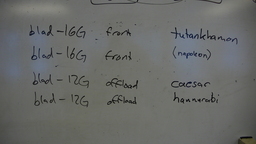 blad-16G front tutankhamon
blad-16G front (napoleon)
blad-12G offload caesar
blad-12G offload hammurabi